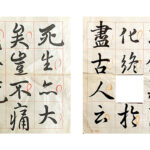 化終於
盡古人云
死生亦大
矣豈不痛